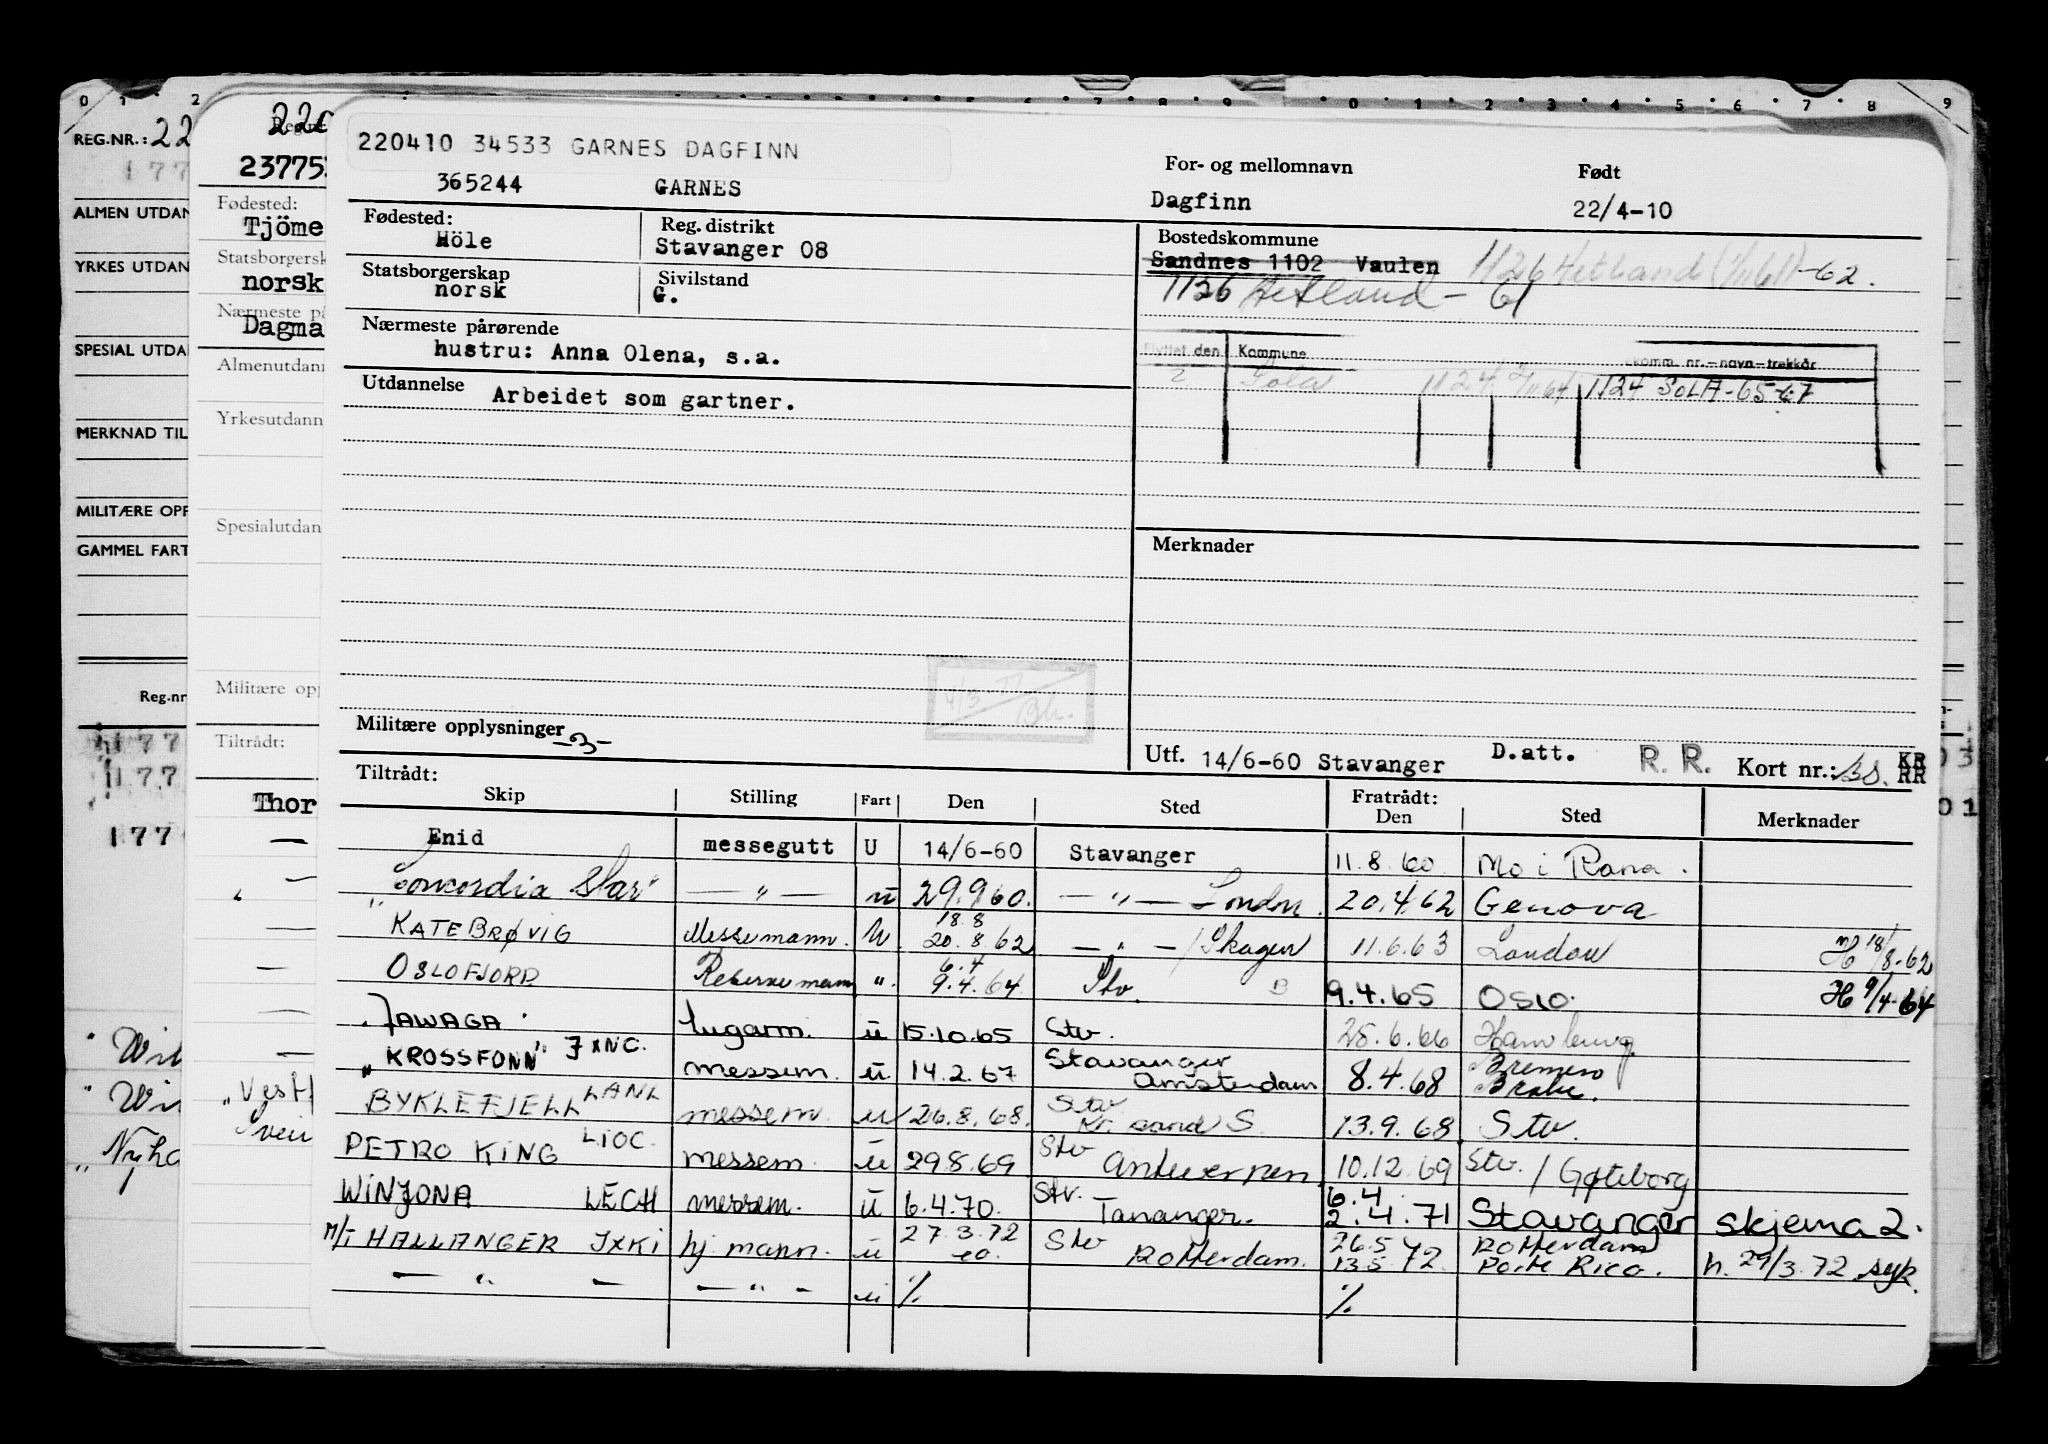 0 1 2 6 7 8 9 0 1 2 3 4 5 6 7 8 9
REG.NR.: 22
177
ALMEN UTDAN
YRKES UTDAN
SPESIAL UTDA
MERKNAD TIL
MILITÆRE OPP
GAMMEL FART
Reg.nr
177
177
177
" Wi
" Wi
" Nyho
220
Reg.nr
23775
Fødested:
Tjöme
Statsborgersk
norsk
Nærmeste på
Dagma
Almenutdann
Yrkesutdann
Spesialutdan
Militære opp
Tiltrådt:
Thor
"Vest
Svei
220410 34533 GARNES DAGFINN
365244 GARNES
For- og mellomnavn
Dagfinn
Født
22/4-10
Fødested:
Höle
Reg. distrikt
Stavanger 08
Bostedskommune
Sandnes 1102 Vaulen 1126 Hetland (1/1 61) -62.
1126 Hetland - 61
Statsborgerskap
norsk
Sivilstand
G.
Nærmeste pårørende
hustru: Anna Olena, s.a.
Flyttet den Kommune komm. nr.-navn-trekkår
2 Sola 1124 1124 SOLA-65-67
Utdannelse
Arbeidet som gartner.
Merknader
4/3-77
Militære opplysninger -3-
Utf. 14/6-60 Stavanger D.att. R. R. Kort nr.: KR RR
Tiltrådt:
Skip Stilling Fart Den Sted Fratrådt: Den Sted Merknader
Enid messegutt U 14/6-60 Stavanger 11.8.60 Mo i Rana.
"Concordia Star" — " — u 29.9.60. — " — London. 20.4.62 Genova
KATE BRØVIG Messemann. u 18.8 20.8.62 — " — / Skagen 11.6.63 London H 18/8-62
OSLOFJORD " 6.4 9.4.64 Stv. B 9.4.65 OSLO. H 9/4-64
"JAWAGA" lugarm. u 15.10.65 Stv. 25.6.66 Hamburg
"KROSSFONN" JXNC. messem. u 14.2.67 Stavanger Amsterdam 8.4.68 Bremen Brake.
BYKLEFJELL LANL messem. u 26.8.68. Stv Kr. sand S. 13.9.68 Stv.
PETRO KING LIOC messem. u 29.8.69 Stv Antwerpen 10.12.69 Stv. / Gøteborg
WINJONA LECH messem. u 6.4.70. Stv. Tananger. 6.4. 2.4.71 Stavanger skjema 2.
M/T HALLANGER JXKI hj. mann. u 27.3.72 Stv Rotterdam. 26.5 13.5 72. Rotterdam Porto Rico. h. 29/3.72 syk.
— " — — " — u ٪ ٪
03
01